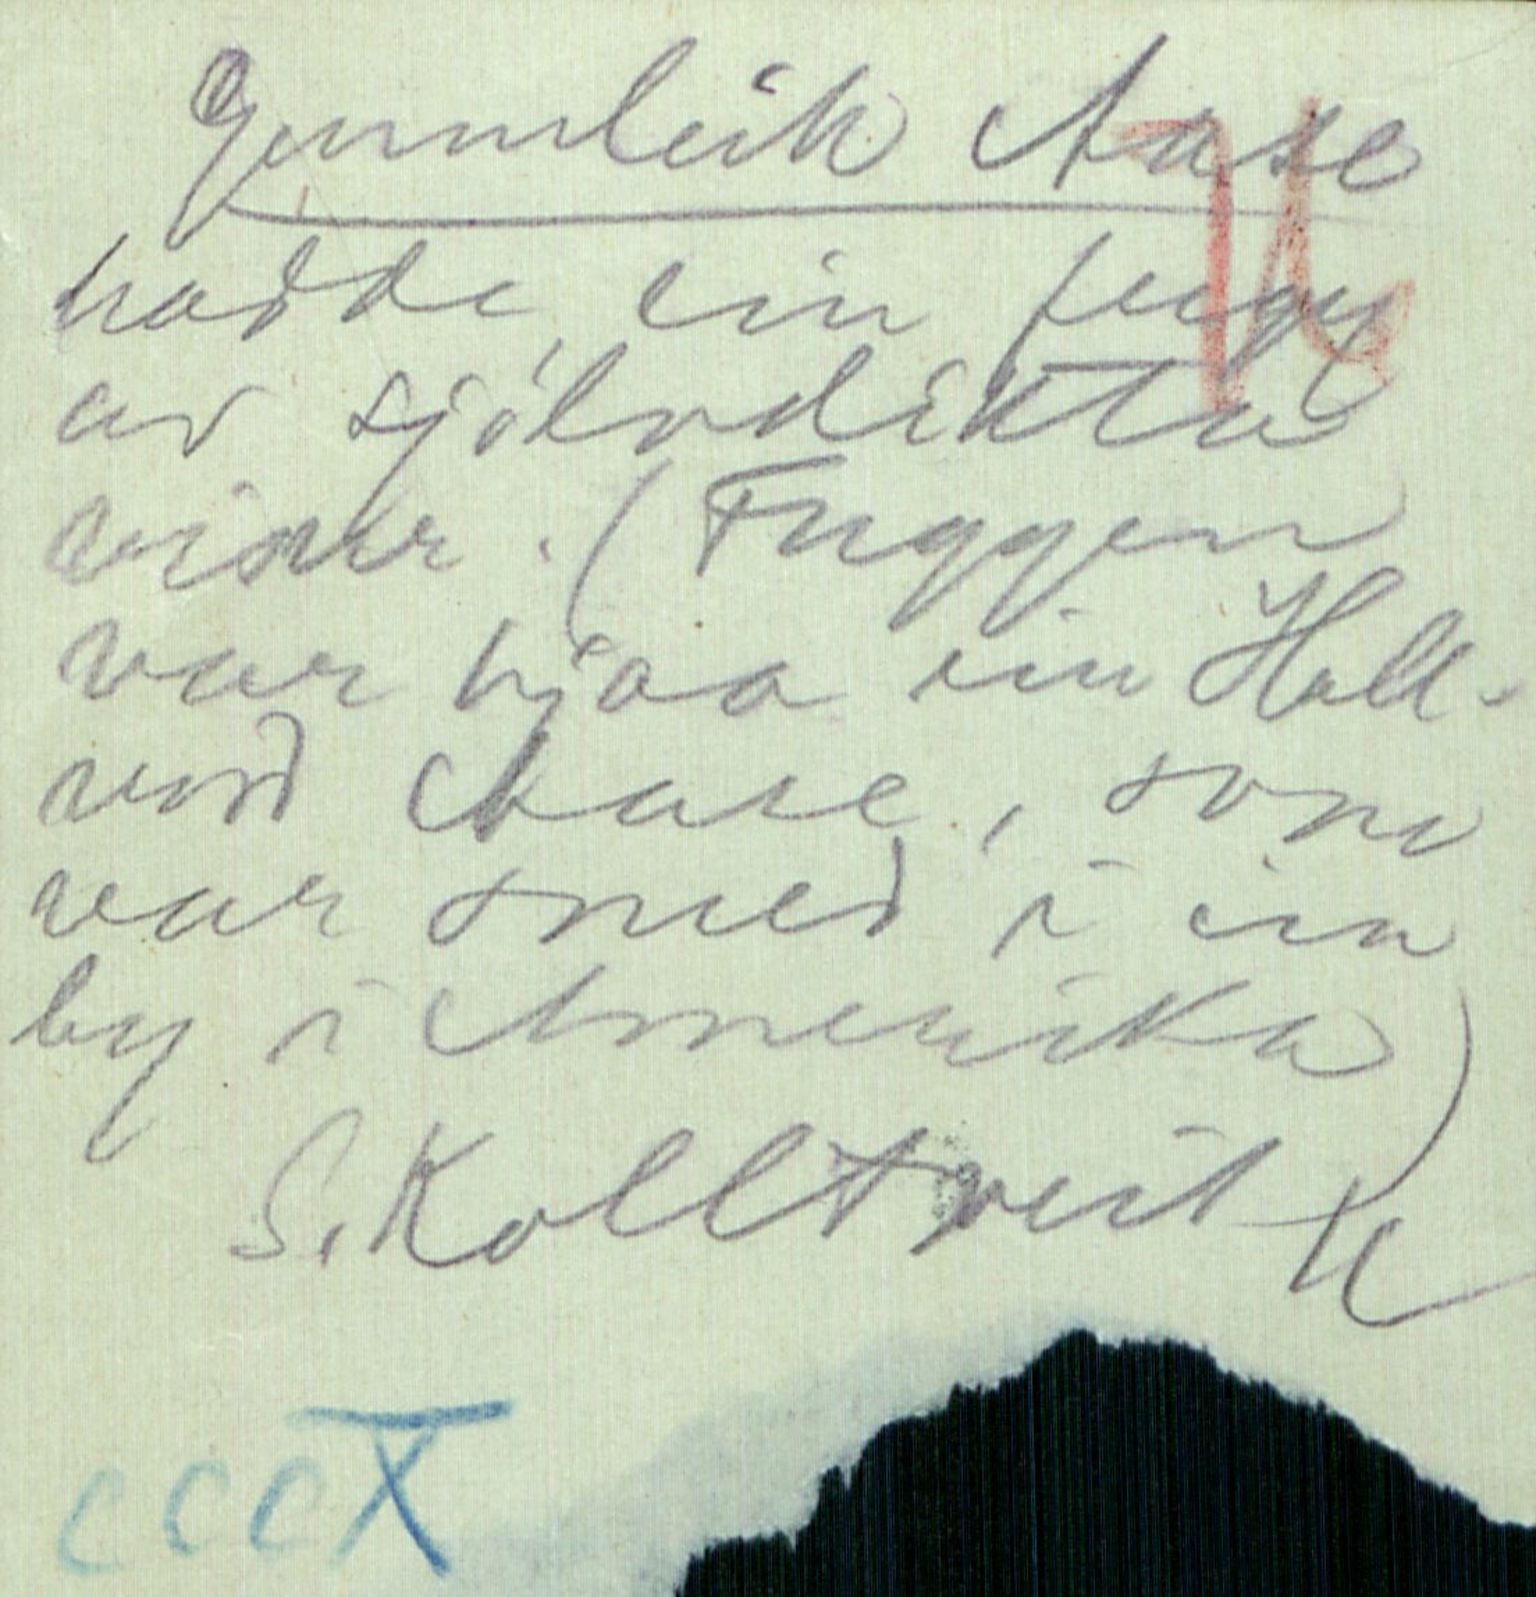 Gunnleik Aase
hadde ein fugg
av sjölvdikta
viser. (Fuggen
var hjaa ein Hall-
vord Aase, som
var smed i ein
by i Amerika)
S. Kolltveit
cccX